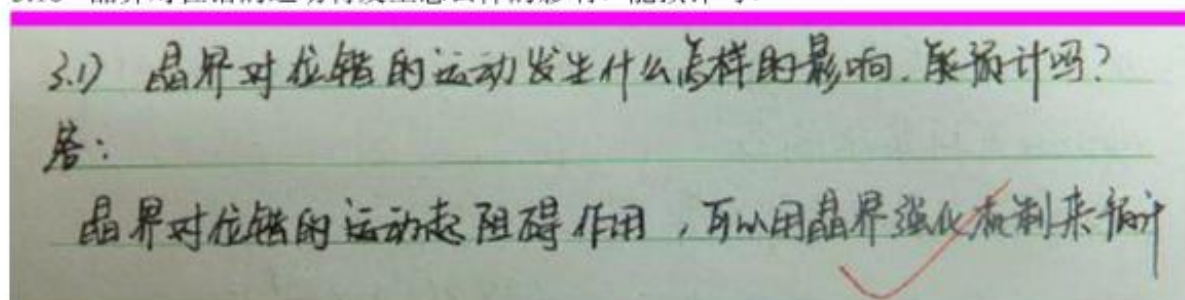 3.1) 晶界对位错的运动发生什么怎样的影响.能预计吗?
答:
晶界对位错的运动起阻碍作用,可以用晶界强化机制来预计